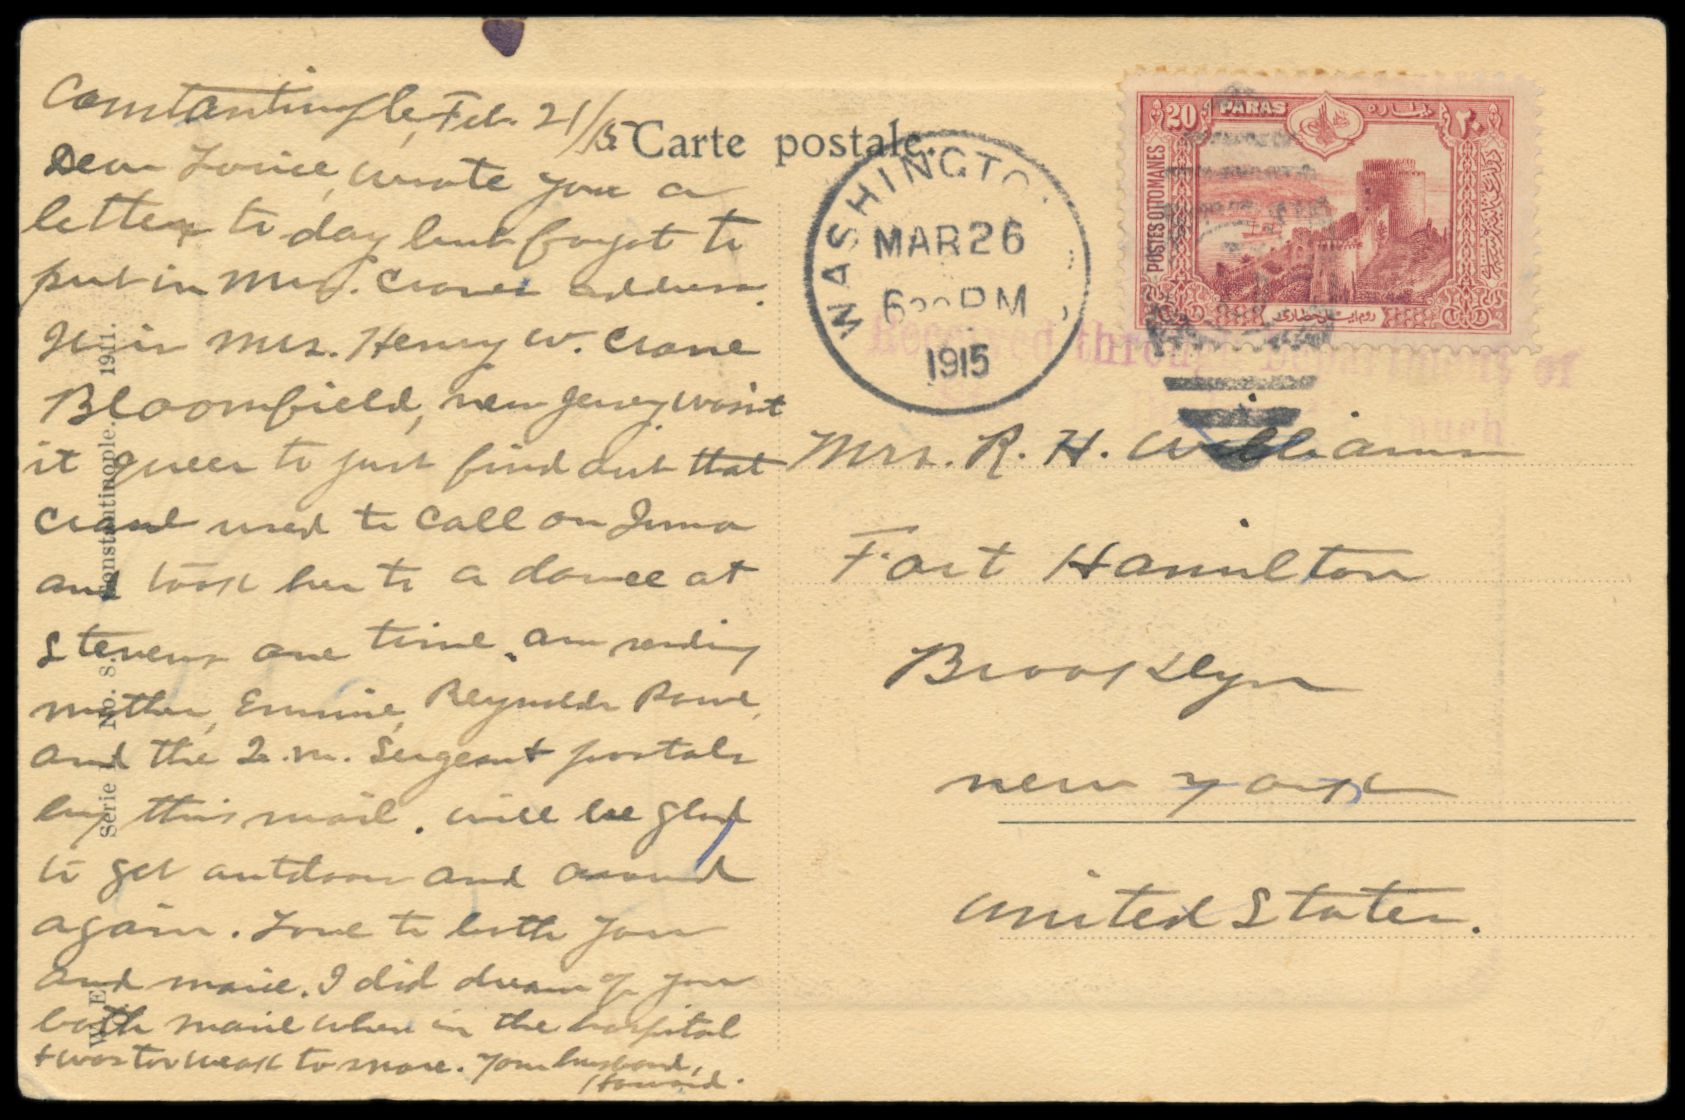 Constantinople, Feb. 21/15
Dear Louise, wrote you a
letter to day but forgot to
put in Mrs. Cranes address.
It is Mrs. Henry W. Crane
Bloomfield, New Jersey wasn't
it queer to just find out that
Crane used to call on Irma
and took her to a dance at
Stevens one time. am sending
mother, Ermine, Reynolds Rowe,
and the Q.M. Sergeant postals
by this mail. will be glad
to get outdoors and around
again. Love to both you
and Marie. I did dream of you
both Marie when in the hospital
+ was too weak to move. Your husband,
Howard.
Carte postale.
WASHINGTON
MAR 26
6 PM
1915
20 PARAS ٢٠ پاره
POSTES OTTOMANES
روم ايلى حصارى
Received through Department of
Mrs. R. H. Williams
Fort Hamilton
Brooklyn
New York
United States.
Serie I. No. 8. Constantinople. 1911.